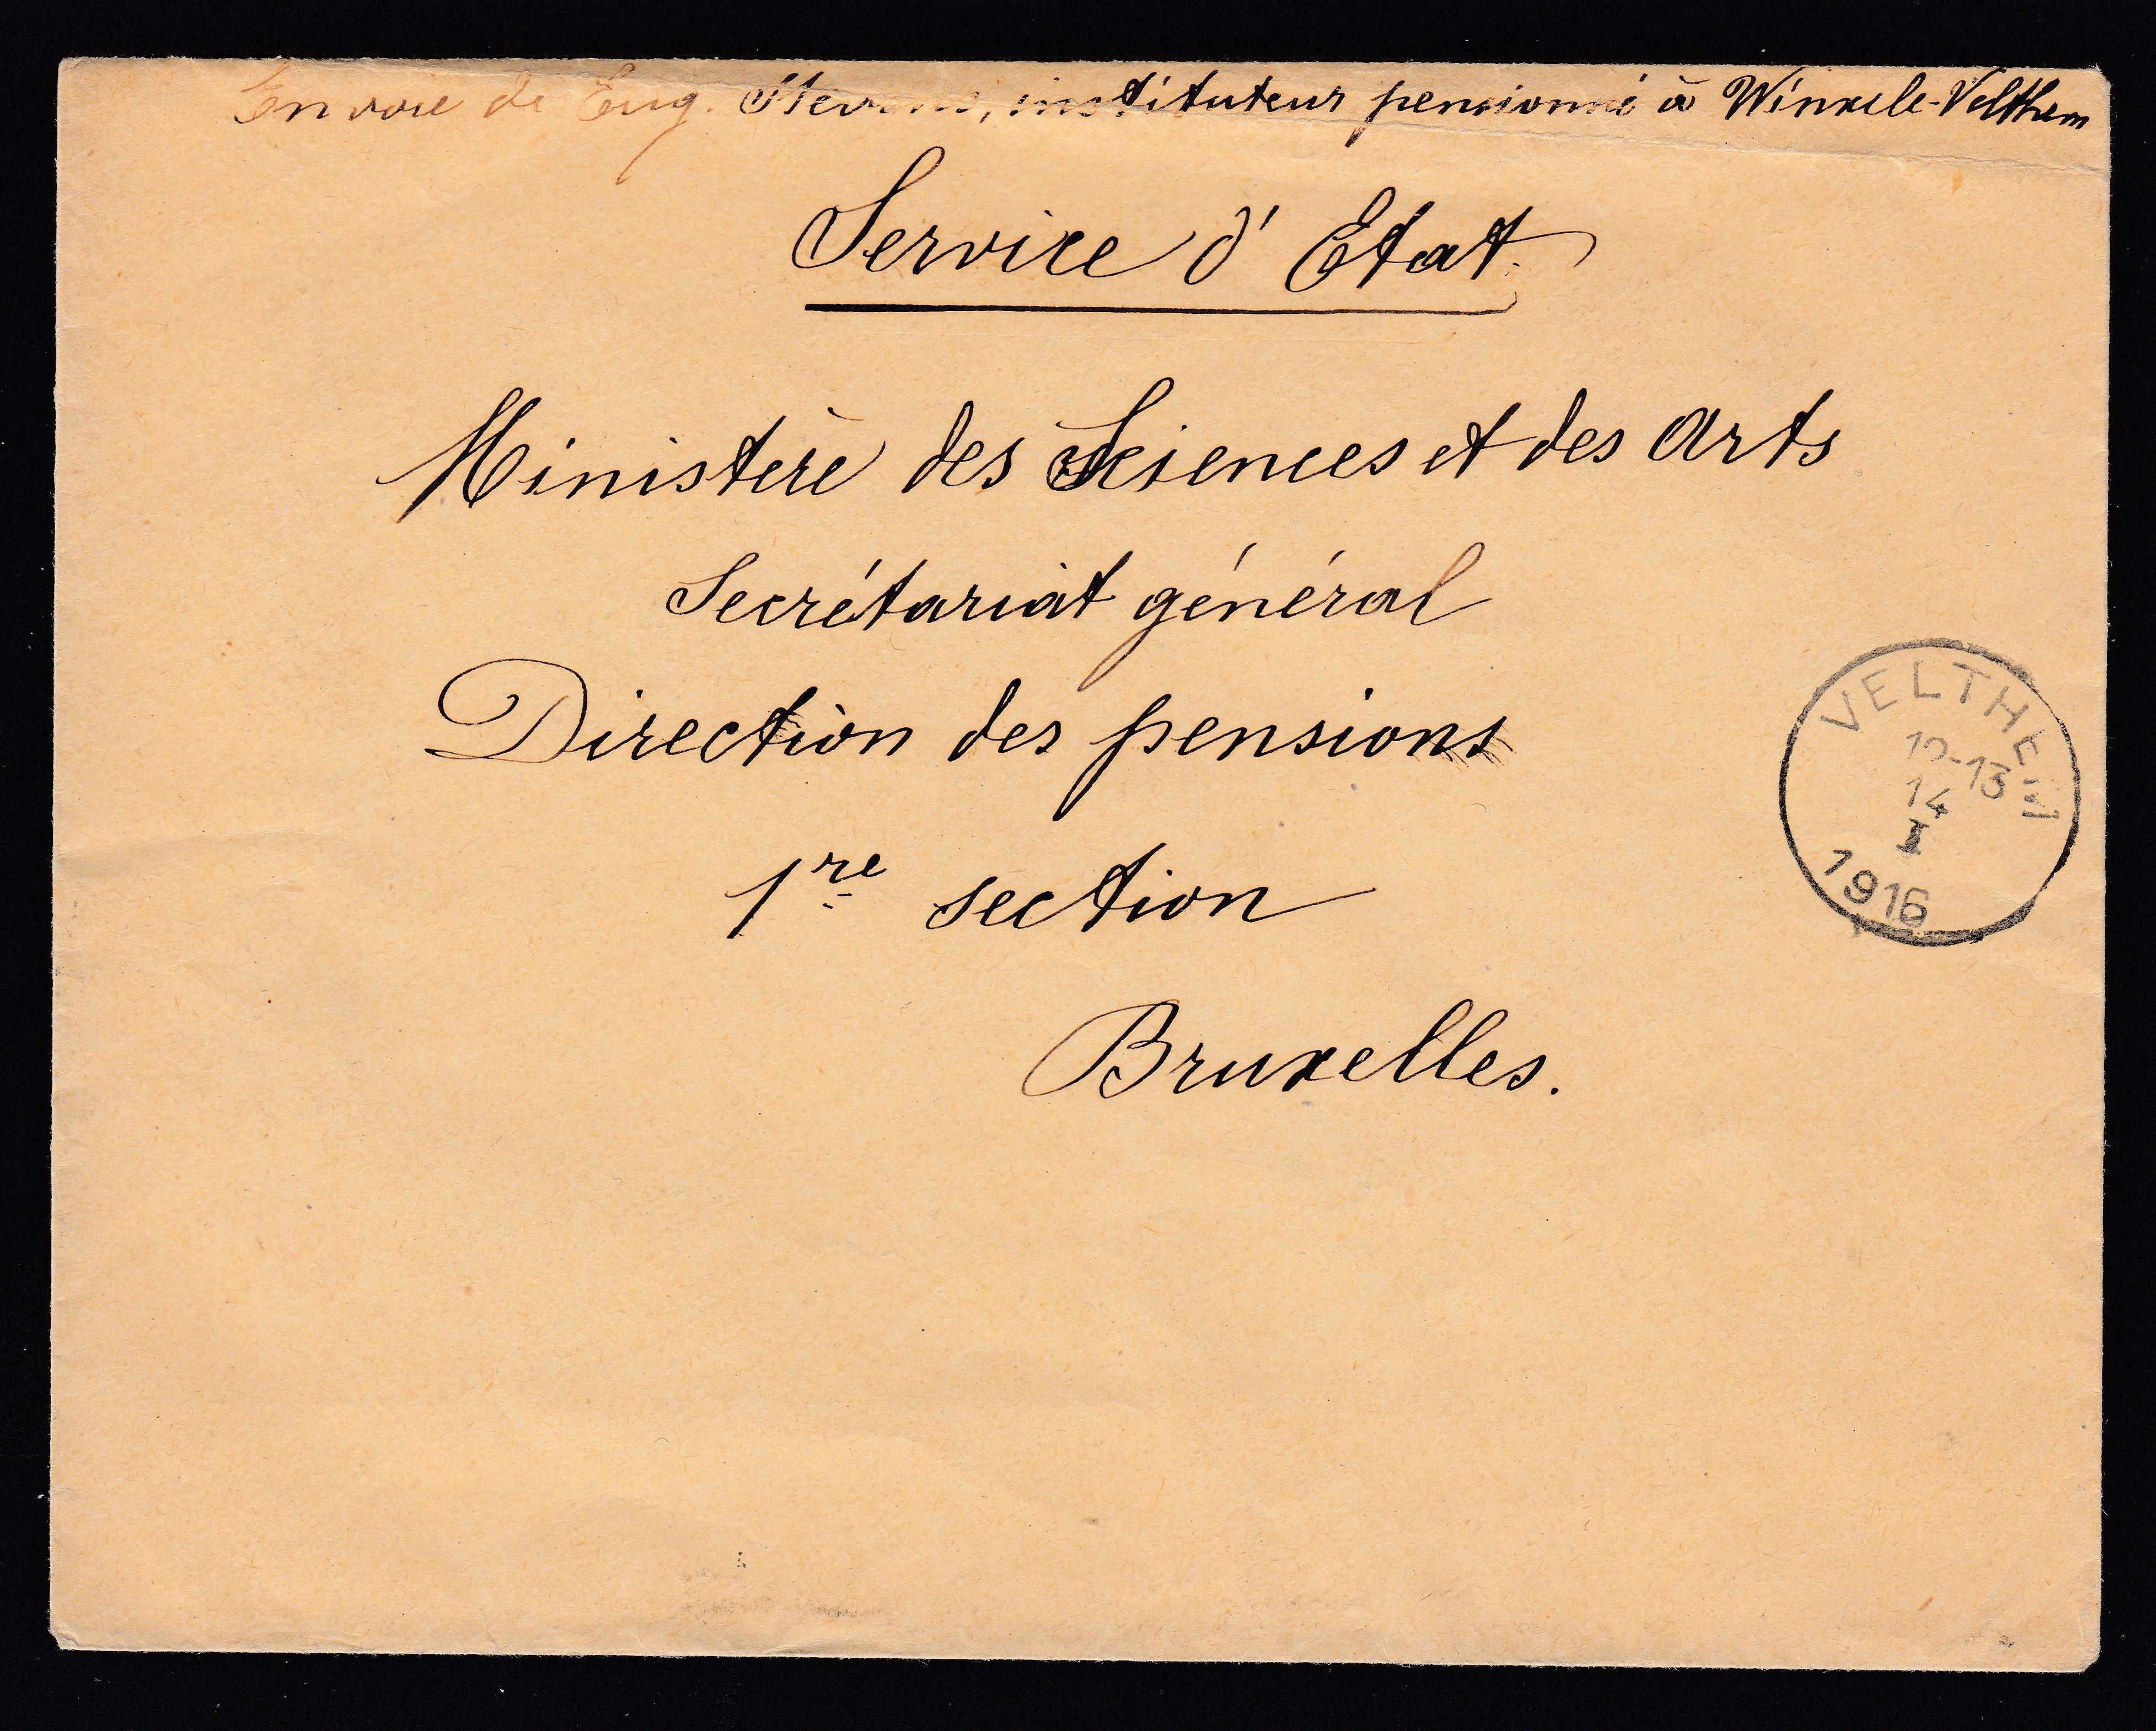 Envoie de Eug. Stevens, instituteur pensionné à Winxele-Velthem
Service d'Etat.
Ministère des Sciences et des Arts
Secrétariat général
Direction des pensions
1re section
Bruxelles.
VELTHEM
12-13
14
I
1916